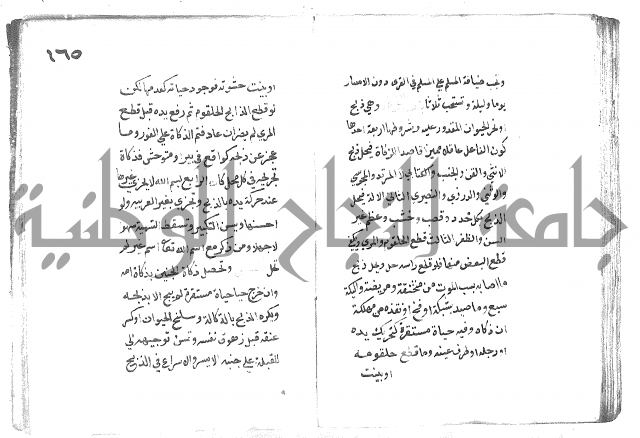 وتجب ضيافة المسلم على المسلم في القرى دون الامصار
يوما وليلة وتستحب ثلاثا وهي ذبح
او نحر الحيوان المقدور عليه وشروطها اربعة احدها
كون الفاعل عاقلا مميزا قاصد الذكاة فيحل ذبح
الانثى والقن والجنب والكتابي لا المرتد والمجوسي
والوثني والدرزي والنصيري الثاني الالة فيحل
الذبح بكل محدد وقصب وخشب وعظم غير
السن والظفر الثالث قطع الحلقوم والمري ويكفي
قطع البعض منهما فلو قطع راسه حل ويحل ذبح
ما اصابه سبب الموت من منخنقة ومريضة واكيلة
سبع وما صيد بشبكة او فخ او انقذه من مهلكة
ان ذكاه وفيه حياة مستقرة كتحريك يده
او رجله او طرف عينه وما قطع حلقومه
او بينت
١٦٥
او بينت حشوته فوجود حياته كعدمها لكن
لو قطع الذابح الحلقوم ثم رفع يده قبل قطع
المري لم يضر ان عاد فتمم الذكاة على الفور وما
عجز عن ذبحه كواقع في بير ومتوحش فذكاته
بجرحه في كل محل كان الرابع بسم الله لا يجزي غيرها
عند حركة يده بالذبح وتجزي بغير العربية ولو
احسنها ويسن التكبير وتسقط التسمية سهوا
لا جهلا ومن ذكر مع اسم الله تعالى اسم غيره لم
تحل وتحصل ذكاة الجنين بذكاة امه
وان خرج حيا حياة مستقرة لم يبح الا بذبحه
ويكره الذبح بالة كالة وسلخ الحيوان او كسر
عنقه قبل زهوق نفسه وتسن توجيهه الى
القبلة على جنبه الايسر والاسراع في الذبح
جامعة النجاح الوطنية